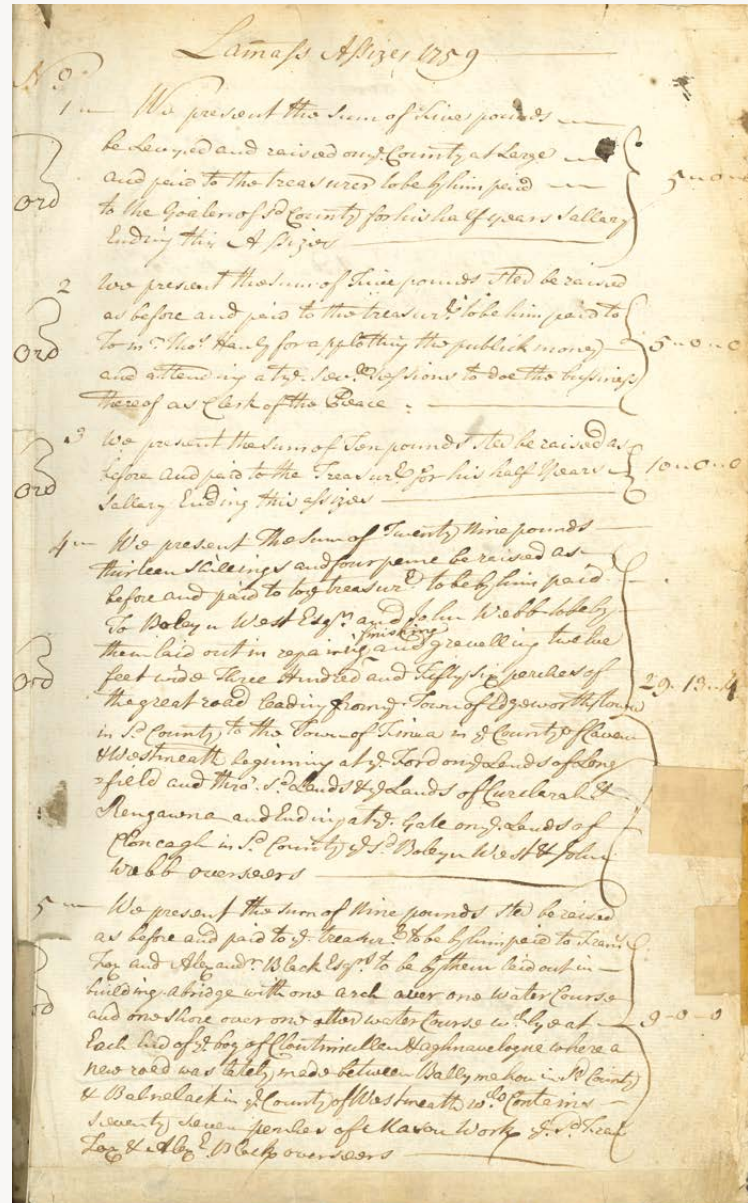 Lamass Assizes 1759
No.
1 We present the sum of five pounds
be Levyed and raised on ye. County at Large
and paid to the treasurer to be by him paid 5-0-0
Ord
to the Goaler of sd County for his half years Sallery
Ending this Assizes
2 We present the sum of five pounds ster be raised
as before and paid to the treasurr. to be him paid to
Ord To mr. Thos. Hanly for applotting the publick money 5-0-0
and attending at ye. sevl. Sessions to doe the bussiness
thereof as Clerk of the Peace.
3 We present the sum of Ten pounds ster be raised as
before and paid to the Treasurr. for his half Years 10-0-0
Ord Sallery Ending this assizes
4 We present The sum of Twenty Nine pounds
thirteen shillings and four pence be raised as
before and paid to the treasurr. to be by him paid
To Boleyn West Esqr. and John Webb to be by
finishing
them laid out in repairing and gravelling twelve
Ord feet wide Three Hundred and Fifty six perches of 29-13-4
the great road leading from ye. Town of Edgeworthstown
in sd. County to the Town of Finea in ye County of Cavan
& Westmeath beginning at ye. Ford on ye Lands of Long
=field and thro'. sd. Lands & ye Lands of
and Ending at ye. Gate on ye. Lands of
Cloncagh in sd. County ye sd. Boleyn West & John
Webb overseers
5 We present the sum of Nine pounds ster be raised
as before and paid to ye. treasurr. to be by him paid to Frans.
Fox and Alexandr. Black Esqrs. to be by them laid out in
building a bridge with one arch over one water Course
Ord and one shore over one other water Course wch. lye at 9-0-0
Each End of ye bog of where a
new road was lately made between Ballymahon in sd. County
& Balnelack in ye County of Westmeath wch. Contains
seventy seven perches of Mason Work ye. sd. Fran
Fox & Alexr. Black overseers